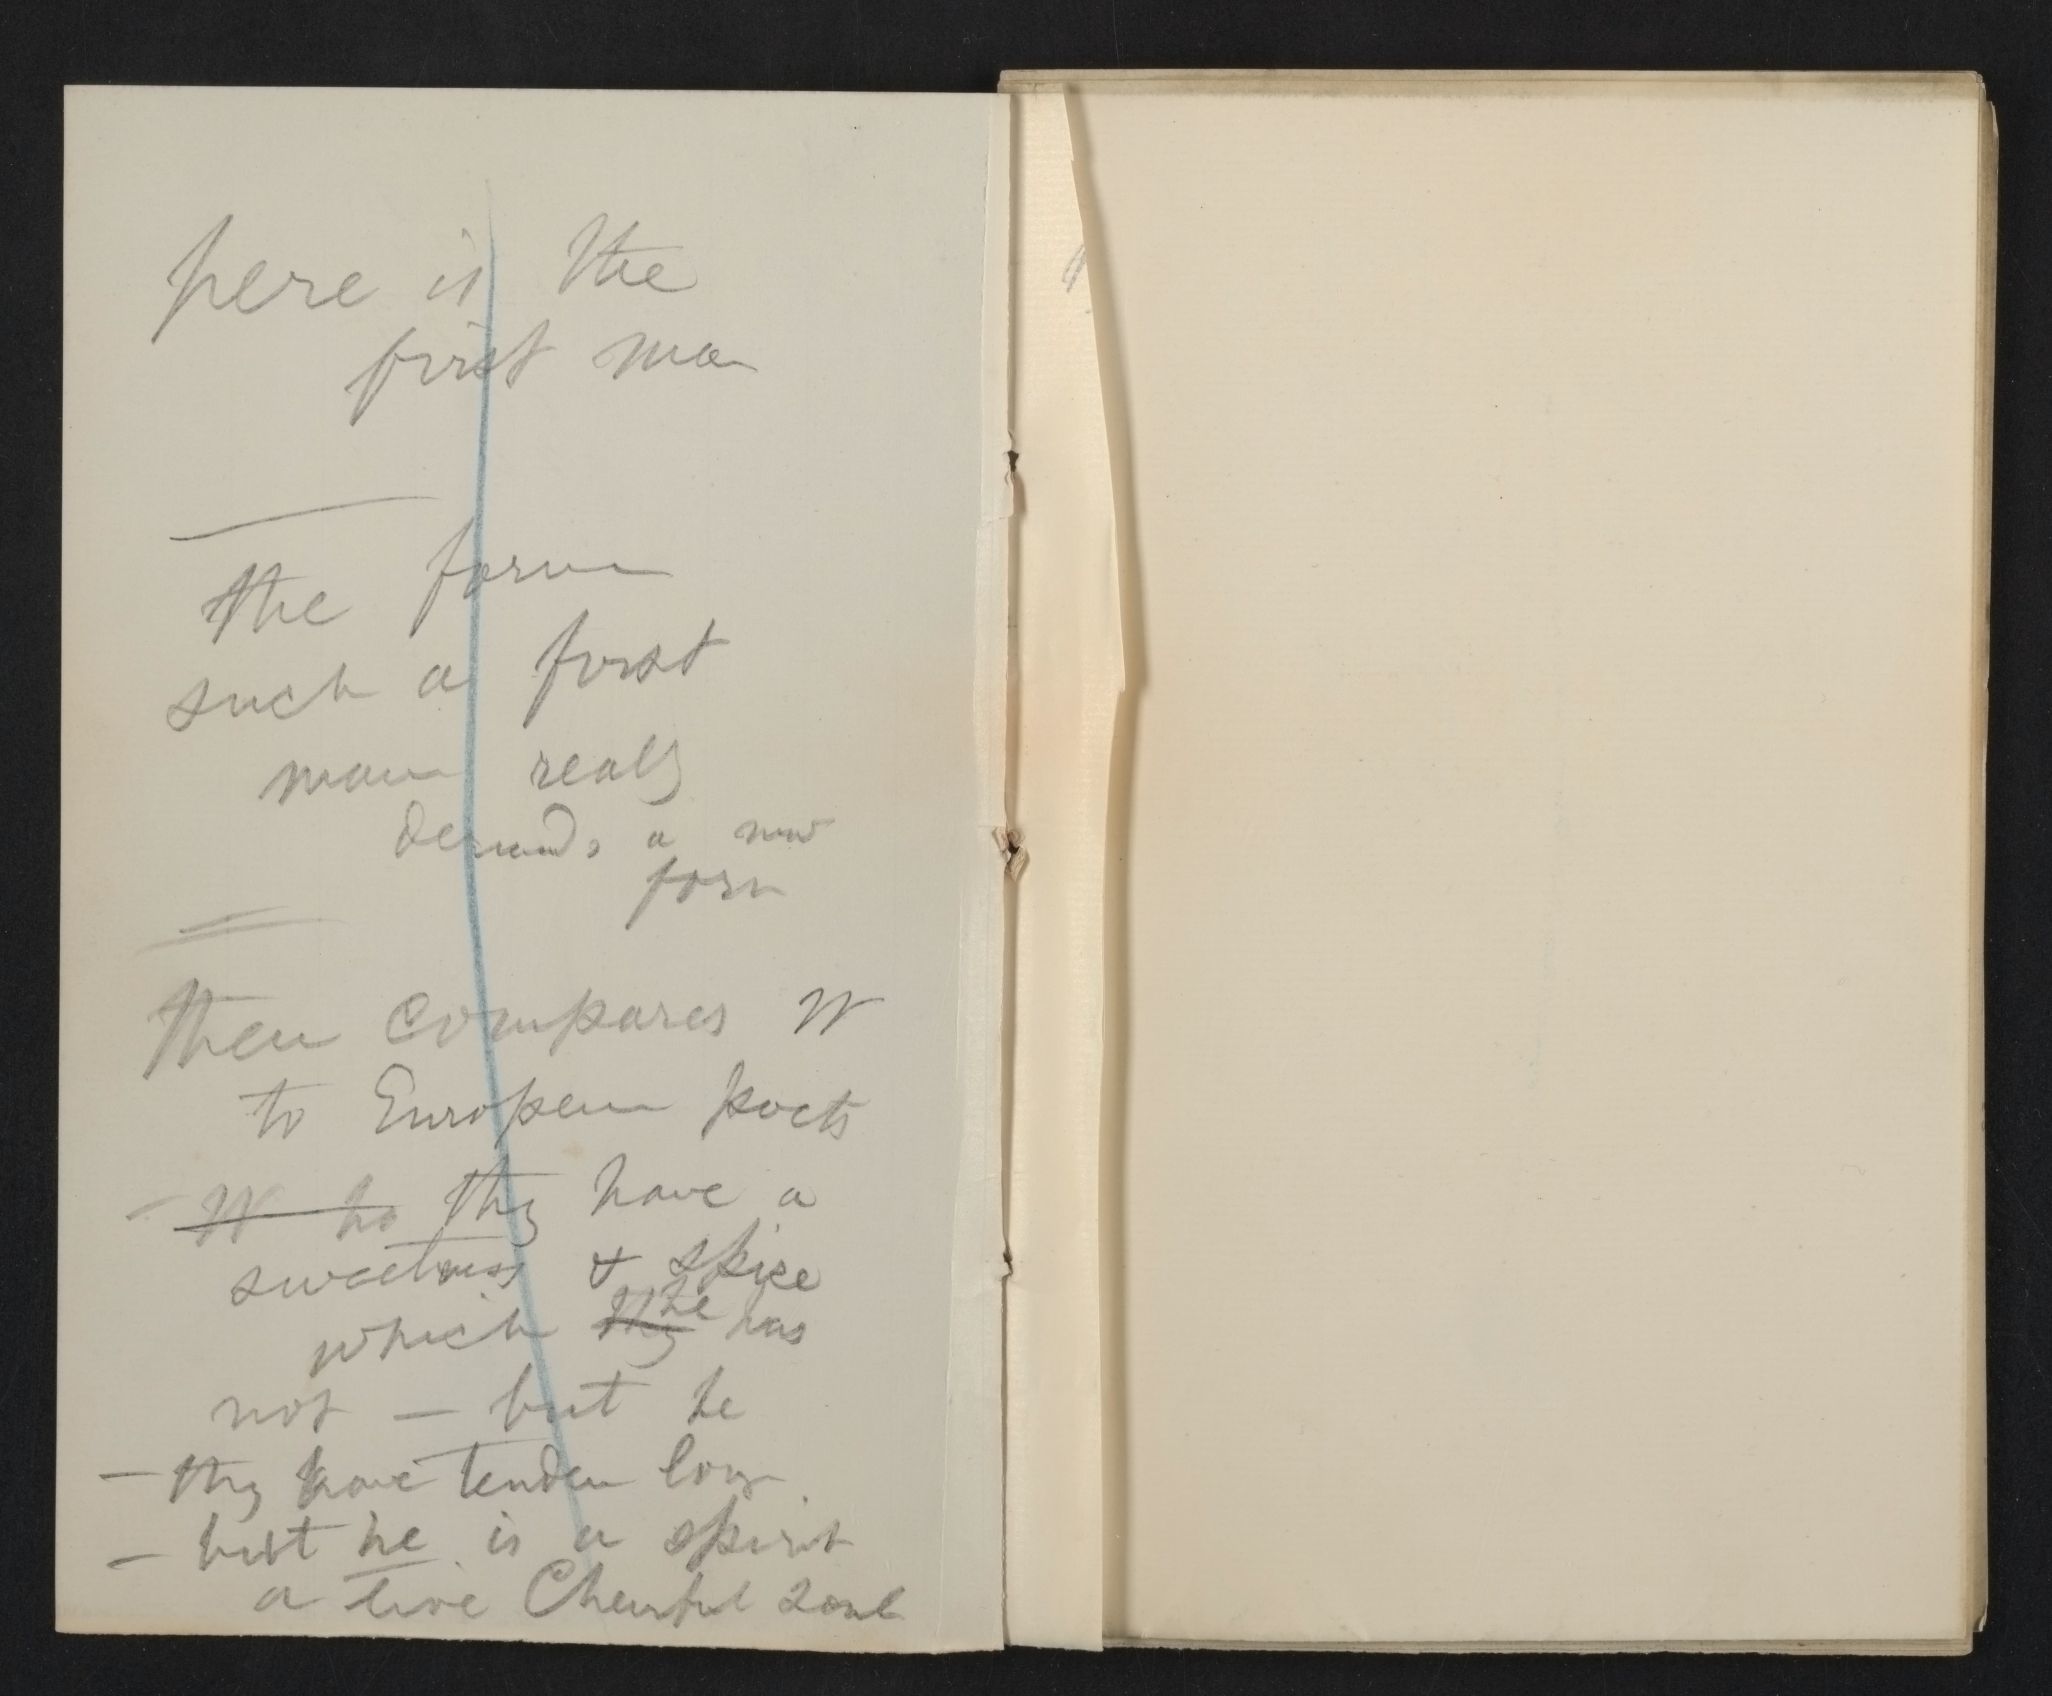 here is the
first man
the form
such a first
man really
demands a new
form
then compares W
to European poets
— W ha they have a
sweetness & spice
which they he has
not — but he
— they have tender love
— but he is a spirit
a live Cheerful soul